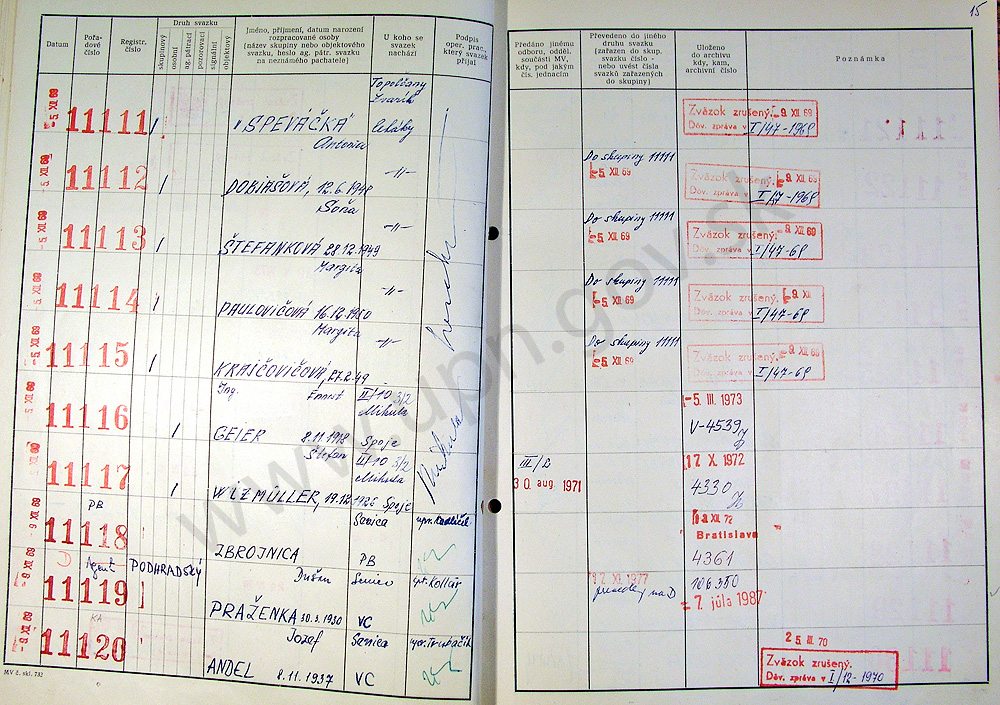 15
Datum
Pořadové číslo
Registr. číslo
Druh svazku
skupinový
osobní
ag. pátrací
pozorovací
signální
objektový
Jméno, příjmení, datum narození
rozpracované osoby
(název skupiny nebo objektového
svazku, heslo ag. pátr. svazku
na neznámého pachatele)
U koho se
svazek
nachází
Podpis
oper. prac.,
který svazek
přijal
Předáno jinému
odboru, odděl.
součásti MV,
kdy, pod jakým
čís. jednacím
Převedeno do jiného
druhu svazku
(zařazen do skup.
svazku číslo -
nebo uvést čísla
svazků zařazených
do skupiny)
Uloženo
do archivu
kdy, kam,
archivní číslo
Poznámka
-5. XII 69 11111 "SPEVÁČKA" Topoľčany
Antonia
Zväzok zrušený. - 9. XII. 69
Dôv. zpráva v I/47-1968
-5. XII 69 11112 DOBIAŠOVÁ, 12.6.1948 -"-
Soňa
Do skupiny 11111
- 5. XII. 69
Zväzok zrušený. - 9. XII. 69
Dôv. zpráva v I/47-1968
-5. XII 69 11113 ŠTEFANKOVÁ 28.12.1949 -"-
Margita
Do skupiny 11111
- 5. XII. 69
Zväzok zrušený. - 9. XII. 69
Dôv. zpráva v I/47-69
-5. XII 69 11114 PAULOVIČOVÁ 16.12.1950 -"-
Margita
Do skupiny 11111
- 5. XII 69
Zväzok zrušený. - 9. XII
Dôv. zpráva v I/47-69
-5. XII 69 11115 KRAJČOVIČOVÁ, 27.2.49 -"-
Do skupiny 11111
- 5. XII. 69
Zväzok zrušený. - 9. XII 69
Dôv. zpráva v I/47-69
Ing. Ernest II/10 3/2
Mikula
-5. XII 69 11116 GEIER 8.11.1918 Spoje
-5. III. 1973
V-4539
Štefan III/10 3/2
Mikula
-5. XII 69 11117 WLZMÜLLER, 19.12.1926 Spoje
30. aug. 1971
17 X. 1972
4330
PB Senica
-9 XII 69 11118 ZBROJNICA PB
XII. 72
Bratislava
4361
Agent PODHRADSKÝ Dušan Senica Kollár
-9 XII 69 11119 PRAŽENKA 30.3.1930 VC
12. XII. 1977
106350
- 7. júla 1987
KA Jozef Senica Trubačík
-9 XII 69 11120 ANDEL 8.11.1937 VC
25. III. 70
Zväzok zrušený.
Dôv. zpráva v I/12-1970
MV č. skl. 732
www.upn.gov.sk